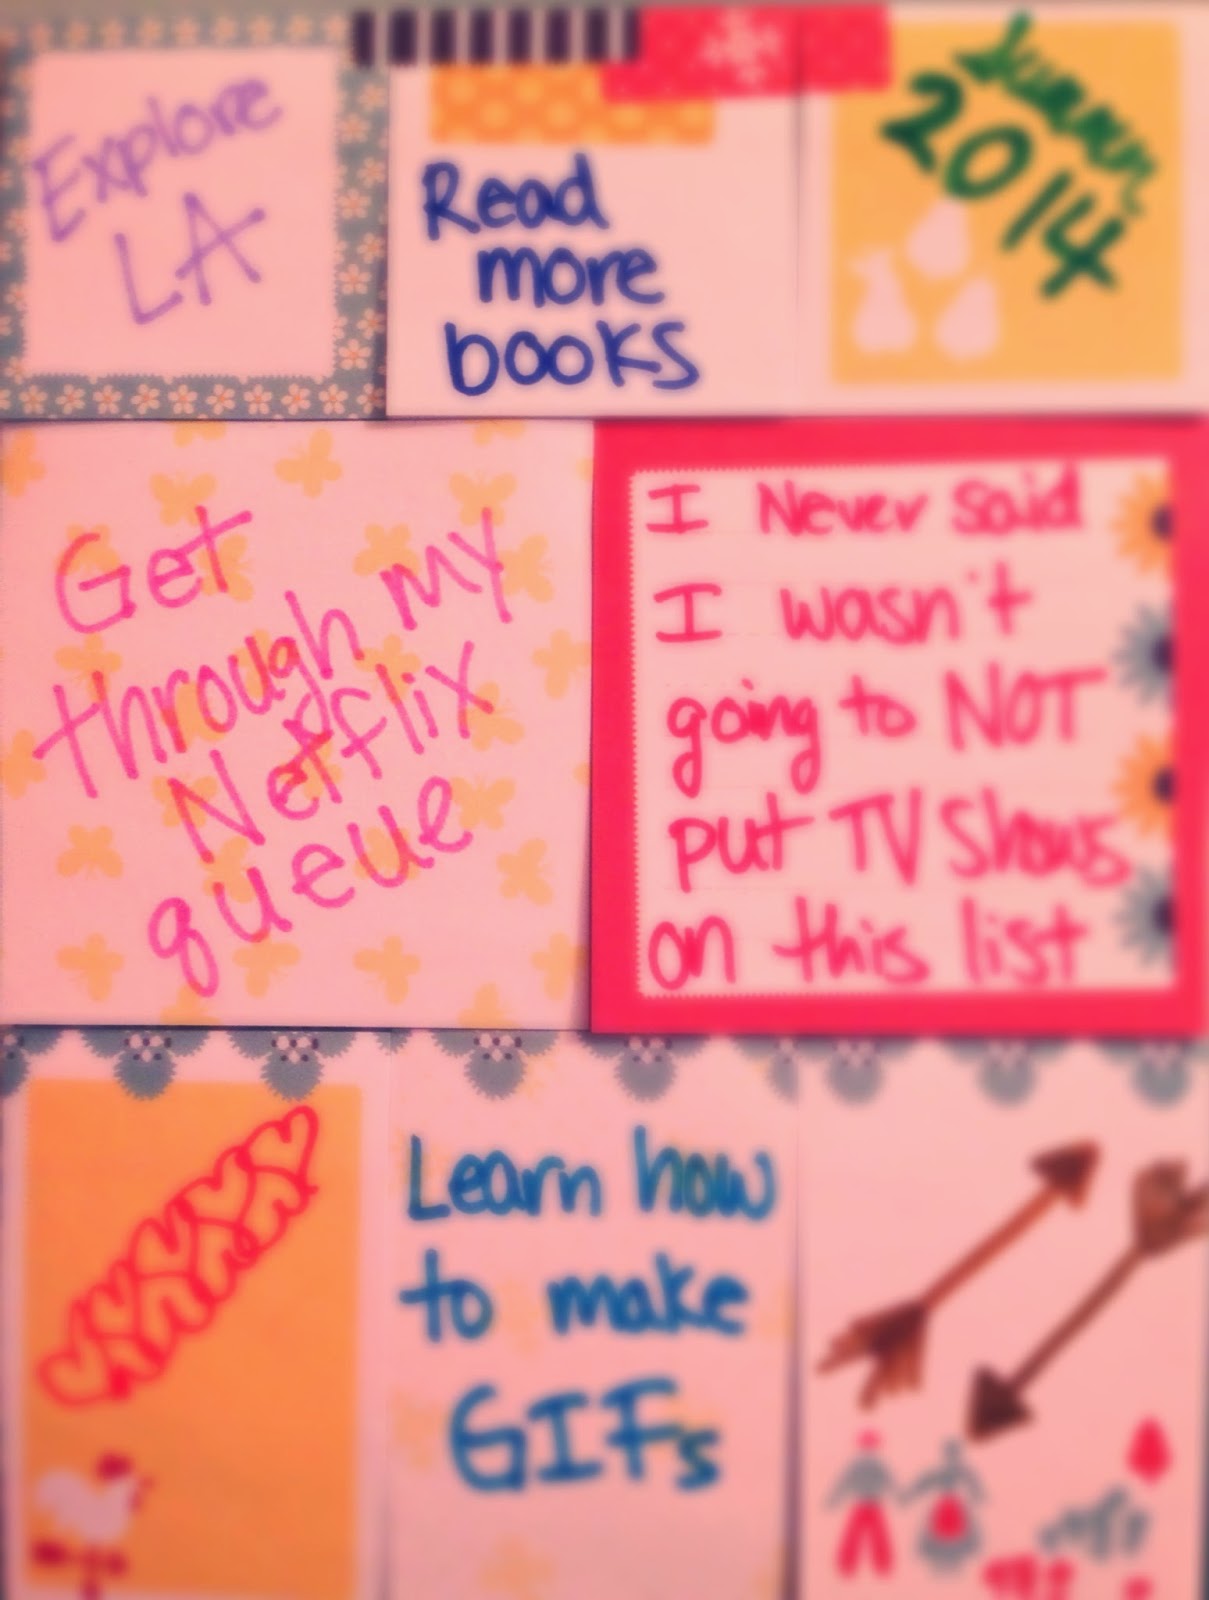 Explore
LA
Read
more
books
Summer
2014
Get
through my
Netflix
queue
I Never said
I wasn't
going to NOT
put TV Shows
on this list
Learn how
to make
GIFs